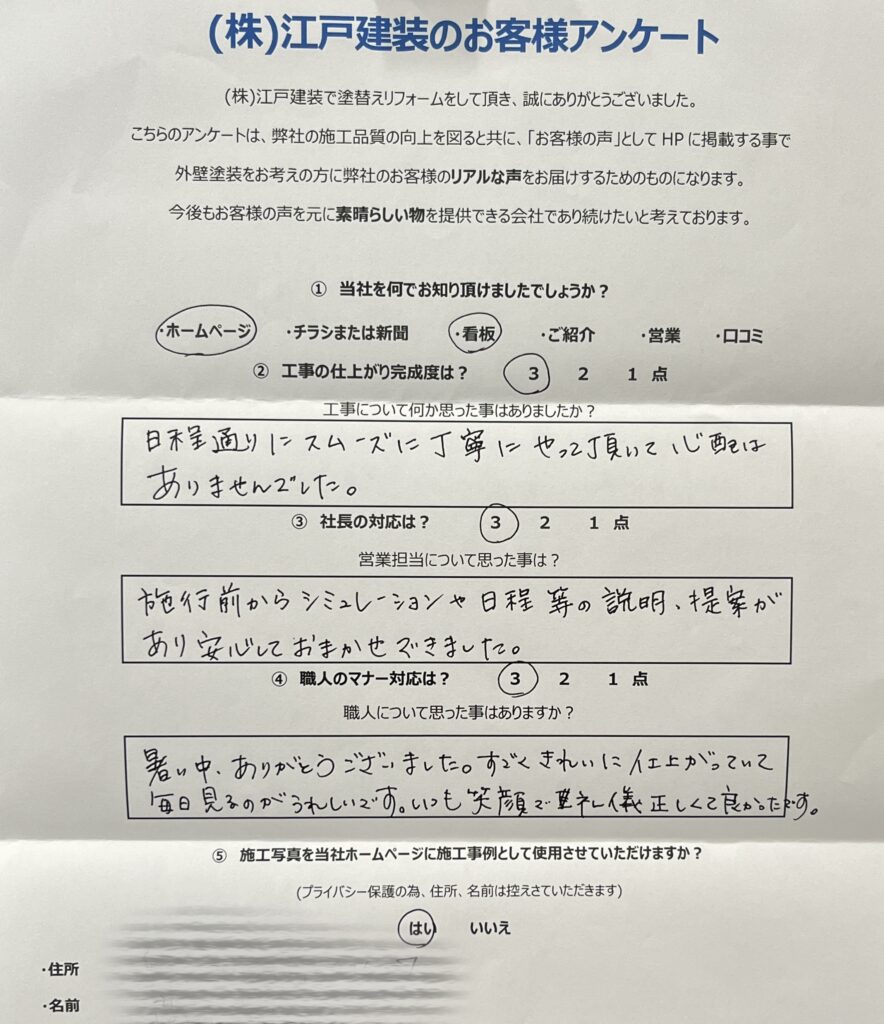 (株)江戸建装のお客様アンケート
(株)江戸建装で塗替えリフォームをして頂き、誠にありがとうございました。
こちらのアンケートは、弊社の施工品質の向上を図ると共に、「お客様の声」として HP に掲載する事で
外壁塗装をお考えの方に弊社のお客様のリアルな声をお届けするためのものになります。
今後もお客様の声を元に素晴らしい物を提供できる会社であり続けたいと考えております。
① 当社を何でお知り頂けましたでしょうか?
・ホームページ ・チラシまたは新聞 ・看板 ・ご紹介 ・営業 ・口コミ
② 工事の仕上がり完成度は? 3 2 1 点
工事について何か思った事はありましたか?
日程通りにスムーズに丁寧にやって頂いて心配は
ありませんでした。
③ 社長の対応は? 3 2 1 点
営業担当について思った事は?
施行前からシミュレーションや日程等の説明、提案が
あり安心しておまかせできました。
④ 職人のマナー対応は? 3 2 1 点
職人について思った事はありますか?
暑い中、ありがとうございました。すごくきれいに仕上がっていて
毎日見るのがうれしいです。いつも笑顔で礼儀正しくて良かったです。
⑤ 施工写真を当社ホームページに施工事例として使用させていただけますか?
(プライバシー保護の為、住所、名前は控えさていただきます)
はい いいえ
・住所
・名前